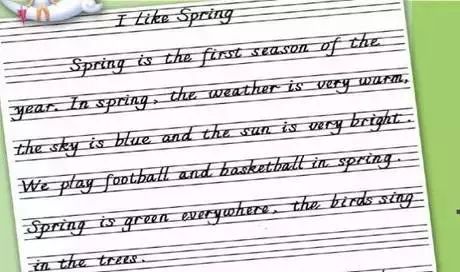 I Like Spring
Spring is the first season of the
year. In spring, the weather is very warm,
the sky is blue and the sun is very bright.
We play football and basketball in spring.
Spring is green everywhere, the birds sing
in the trees.